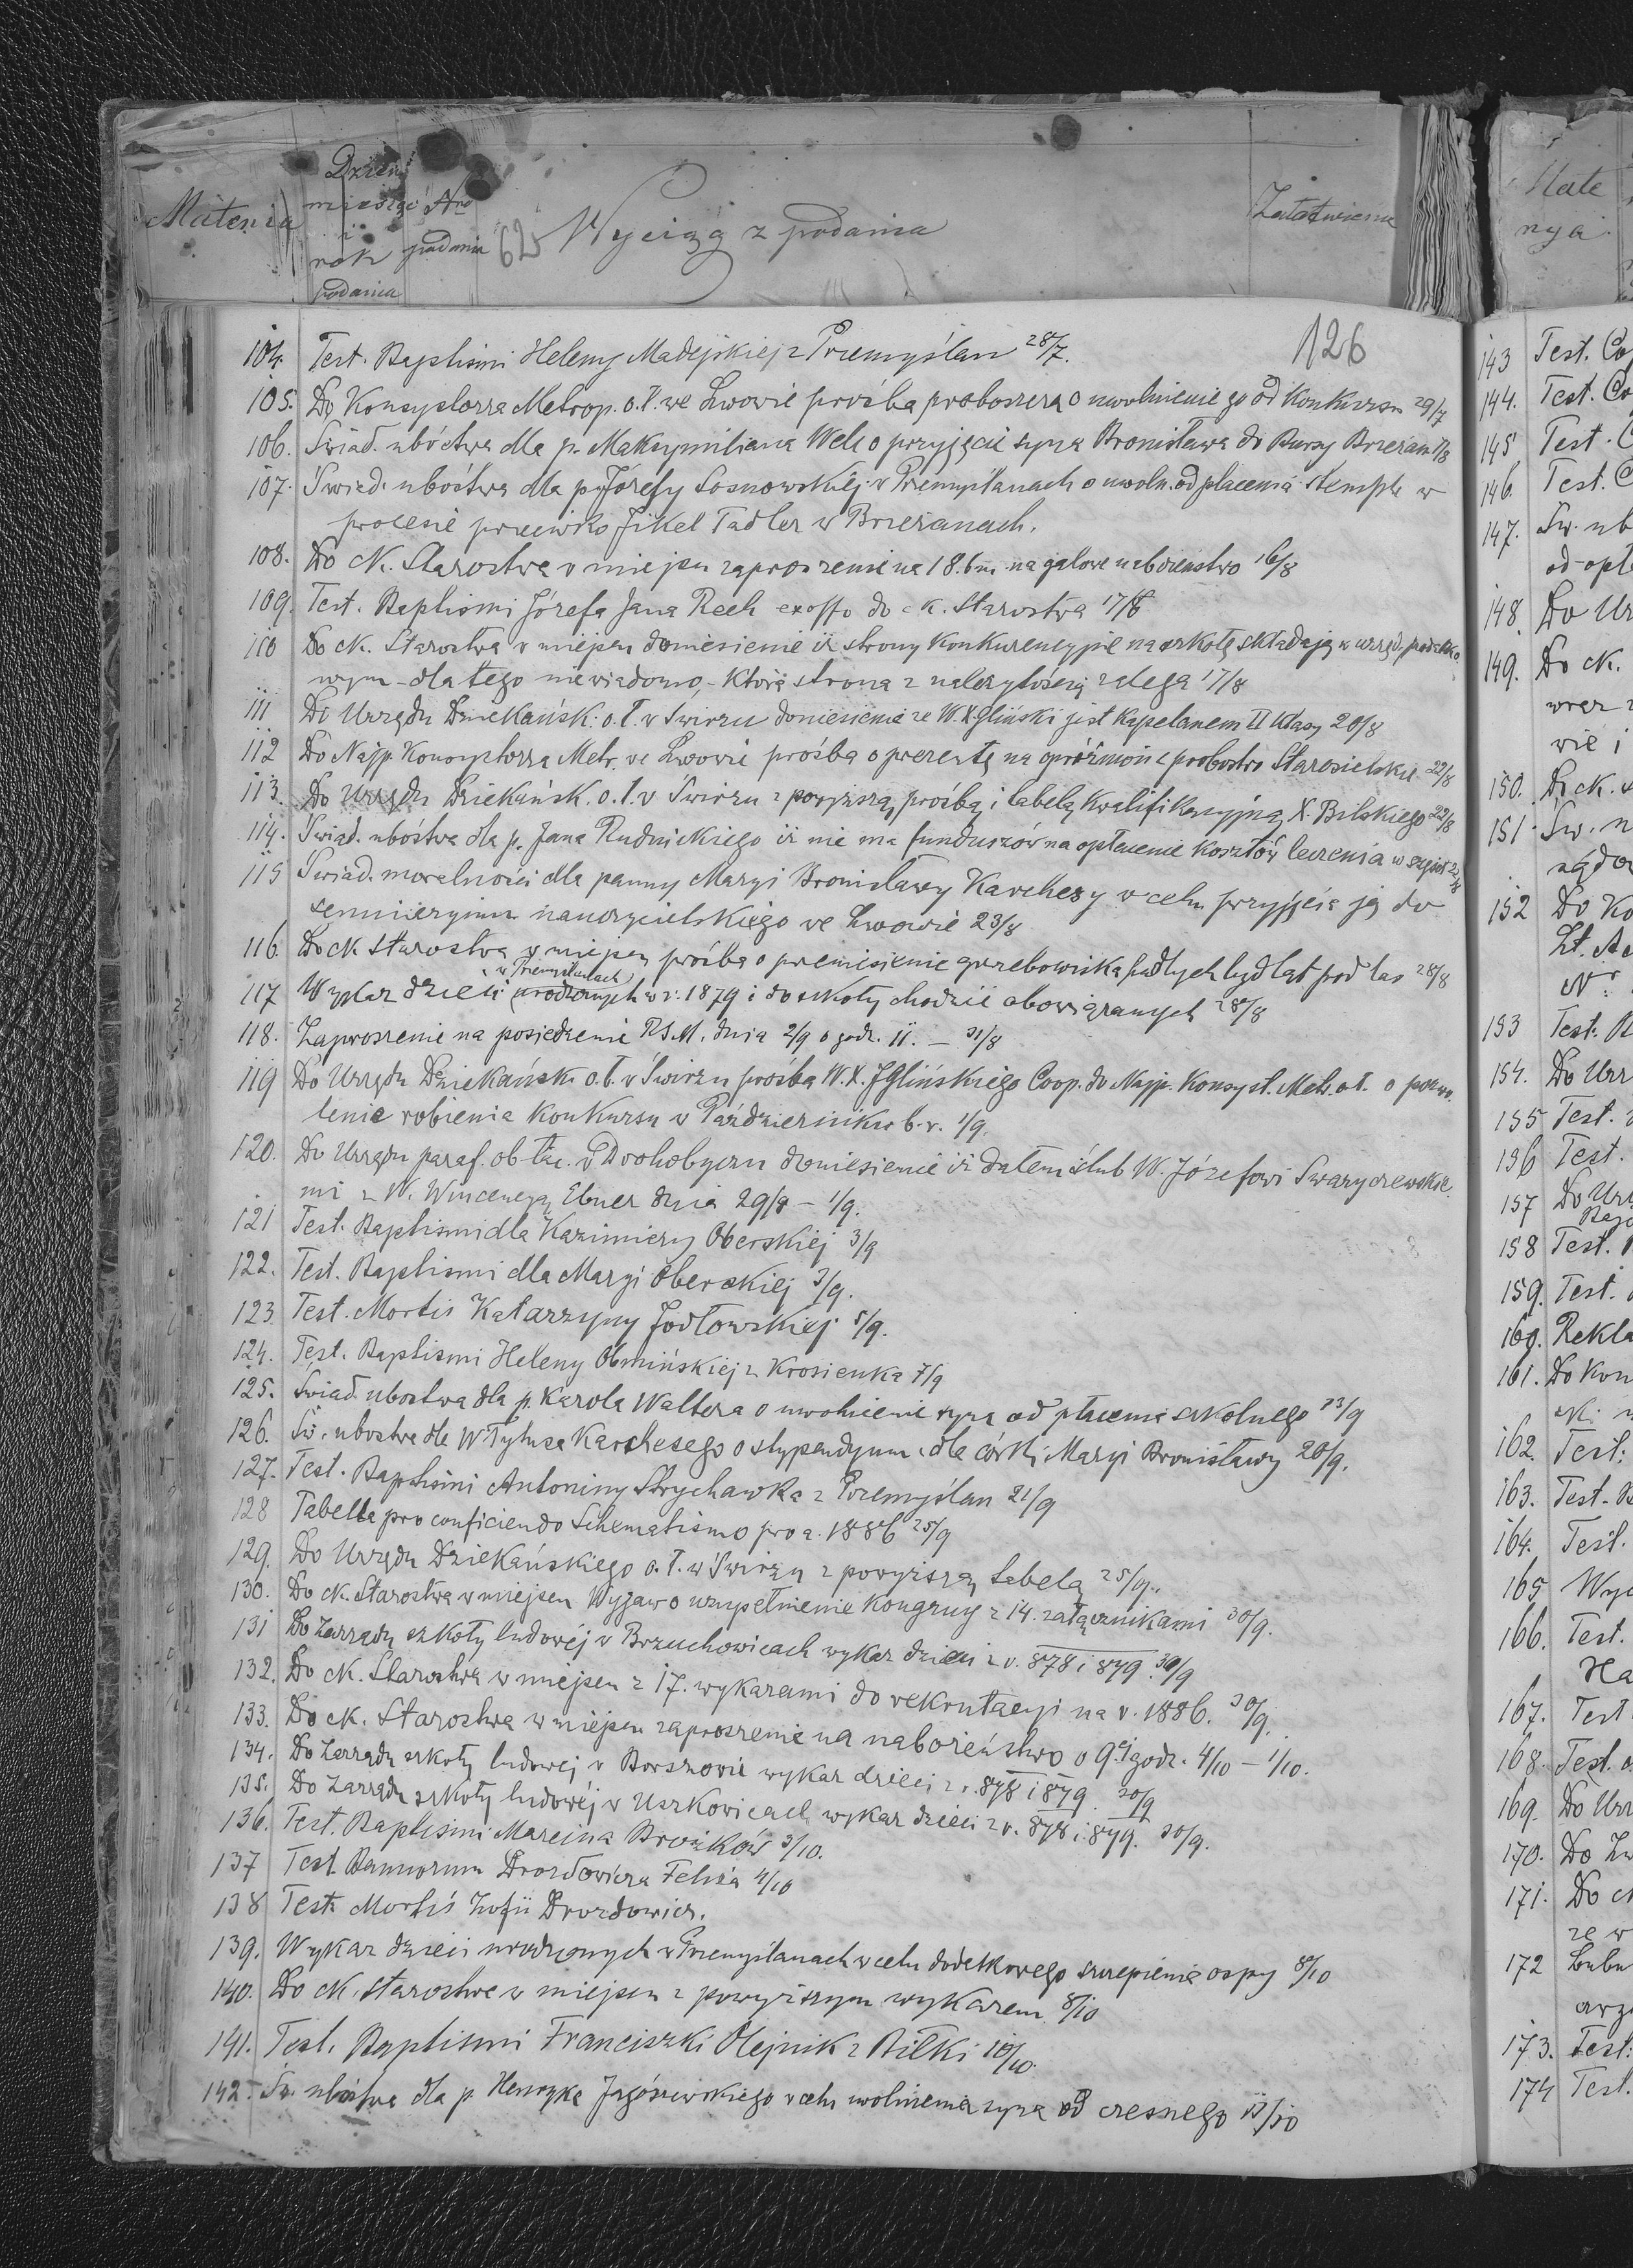 Materia
Dzień
miesiąc Nro
i
rok podania
podania
62
Wyciąg z podania
Załatwienie
126
104. Test. Baptismi Heleny Madejskiej z Przemyślan 28/7.
105. Do Konsystorza Metrop. o.ł. we Lwowie prośba proboszcza o uwolnienie go od Konkursu 29/7
106. Świad. ubóstwa dla p. Maksymiliana Welc o przyjęcie syna Bronisława do Bursy Brzeżan
107. Świad. ubóstwa dla p. Józefy Sosnowskiej w Przemyślanach o uwoln. od płacenia stempli w
procesie przeciwko Fikel Tadler w Brzeżanach.
108. Do ck. Starostwa w miejscu zaproszenie na 18. bm. na galowe nabożeństwo 16/8
109. Test. Baptismi Józefa Jana Rech exoffo do ck. Starostwa 17/8
110 Do ck. Starostwa w miejscu doniesienie iż strony Konkurencyjne na szkołę składają w urzęd. podatko
wym - dlatego niewiadomo, - która strona z należytością zalega 17/8
111 Do Urzędu Dziekańsk. o.ł. w Świrzu doniesienie że W.X. Gliński jest Kapelanem II klasy 20/8
112 Do Najp. Konsystorza Metr. we Lwowie prośba o prezentę na opróżnione probostwo Starosielskie 22/8
113. Do Urzędu Dziekańsk. o.ł. w Świrzu z powyższą prośbą i tabelą kwalifikacyjną X. Bilskiego 22/8
114. Świad. ubóstwa dla p. Jana Rudnickiego iż nie ma funduszów na opłacenie kosztów leczenia w szpit.
115 Świad. moralności dla panny Maryi Bronisławy Karchesy w celu przyjęcia ją do
seminaryum nauczycielskiego we Lwowie 23/8
116. Do ck Starostwa w miejscu prośba o przeniesienie grzebowiska padłych bydląt pod las 28/8
w Przemyślanach
117 Wykaz dzieci urodzonych w r. 1879 i do szkoły chodzić obowiązanych 28/8
118. Zaproszenie na posiedzenie R.S.M. dnia 2/9 o godz. 11. — 31/8
119 Do Urzędu Dziekańsk. o.ł. w Świrzu prośba W.X. J. Glińskiego Coop. do Najp. Konsyst. Metr. o.ł. o pozwo
lenie robienia Konkursu w Październiku b.r. 1/9.
120. Do Urzędu paraf. ob. łac. w Drohobyczu doniesienie iż dałem ślub W. Józefowi Swaryczewskie
mu z W. Wincencyą Ebner dnia 29/8 — 1/9.
121 Test. Baptismi dla Kazimierzy Oberskiej 3/9
122. Test. Baptismi dla Maryi Oberskiej 3/9.
123 Test. Mortis Katarzyny Jodłowskiej 5/9.
124. Test. Baptismi Heleny Obmińskiej z Krosienka 7/9
125. Świad. ubóstwa dla p. Karola Waltera o uwolnienie syna od płacenia szkolnego 13/9
126. Św. ubóstwa dla W Tytusa Karchesego o stypendyum dla córki Maryi Bronisławy 20/9.
127. Test. Baptismi Antoniny Strychawka z Przemyślan 21/9
128 Tabella pro conficiendo Schematismo pro a. 1886 25/9
129. Do Urzędu Dziekańskiego o.ł. w Świrzu z powyższą tabelą 25/9.
130. Do ck. Starostwa w miejscu Wyjaw o uzupełnienie Kongruy z 14. załącznikami 30/9.
131 Do Zarządu szkoły ludowéj w Brzuchowicach wykaz dzieci z r. 878 i 879. 30/9
132. Do ck. Starostwa w miejscu z 17. wykazami do rekrutacyi na r. 1886. 30/9.
133. Do ck. Starostwa w miejscu zaproszenie na nabożeństwo o 9ej godz. 4/10 — 1/10.
134. Do Zarządu szkoły ludowej w Borszowie wykaz dzieci z r. 878 i 879. 30/9
135. Do Zarządu szkoły ludowéj w Uszkowicach wykaz dzieci z r. 878 i 879. 30/9.
136. Test. Baptismi Marcina Brożków 3/10.
137 Test. Bannorum Drozdowicza Felixa 4/10
138 Test. Mortis Zofii Drozdowicz.
139. Wykaz dzieci urodzonych w Przemyślanach w celu dodatkowego szczepienia ospy 8/10
140. Do ck. Starostwa w miejscu z powyższym wykazem 8/10
141. Test. Baptismi Franciszki Olejnik z Biłki 10/10.
142. Św. ubóstwa dla p. Henryka w celu uwolnienia syna od czesnego 11/10
Mate
rya
143 Test. Co
144. Test. Co
145 Test. C
146. Test. C
147. Św. ub
od opł
148. Do Ur
149. Do ck.
wraz z
wie i
150. Do ck. s
151. Św. u
sądo
152 Do Ko
Lt. A
Nr.
153 Test. B
154. Do Urz
155 Test.
156 Test.
157 Do Urz
158 Test.
159. Test.
160. Rekla
161. Do Kon
162. Test.
163. Test. B
164. Test.
165 Wy
166. Test.
Ha
167. Test.
168. Test.
169. Do Urz
170. Do Zw
171. Do c
że w
172
173. Test.
174 Test.